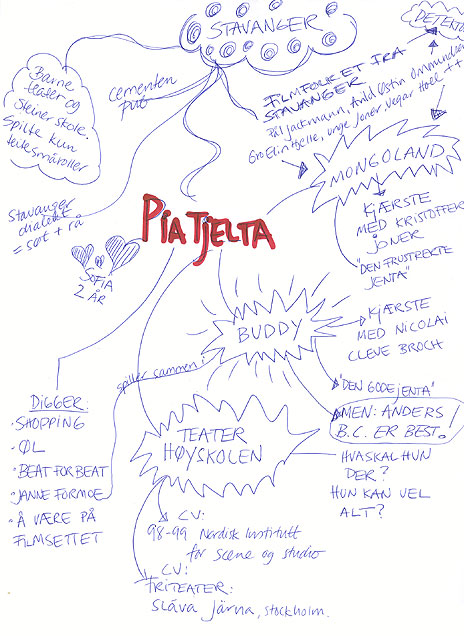 STAVANGER
DETEKTOR
Barne
teater og
Steinerskole.
Spilte kun
teitesmåroller
Cementen
Pub
FILMFOLKET FRA
STAVANGER
Pål Jackmann, Arild Østin Ommundsen
Gro Elin Hjelle, unge Joner Vegar Hoel ++
MONGOLAND
KJÆRSTE
MED KRISTOFFER
JONER
"DEN FRUSTRERTE
JENTA"
Stavanger
dialekt
= søt + rå
PiA TJELTA
SOFIA
2 ÅR
BUDDY
KJÆRSTE
MED NICOLAI
CLEVE BROCH
"DEN GODE JENTA"
MEN: ANDERS
B.C. ER BEST!
spiller sammen i
DIGGER:
· SHOPPING
· ØL
· BEAT FOR BEAT
· JANNE FORMOE
· Å VÆRE PÅ
FILMSETTET
TEATER
HØYSKOLEN
HVA SKAL HUN
DER?
HUN KAN VEL
ALT?
CV:
98-99 Nordisk Institutt
for Scene og studio
CV:
FRITEATER:
Slava Järna, Stockholm.